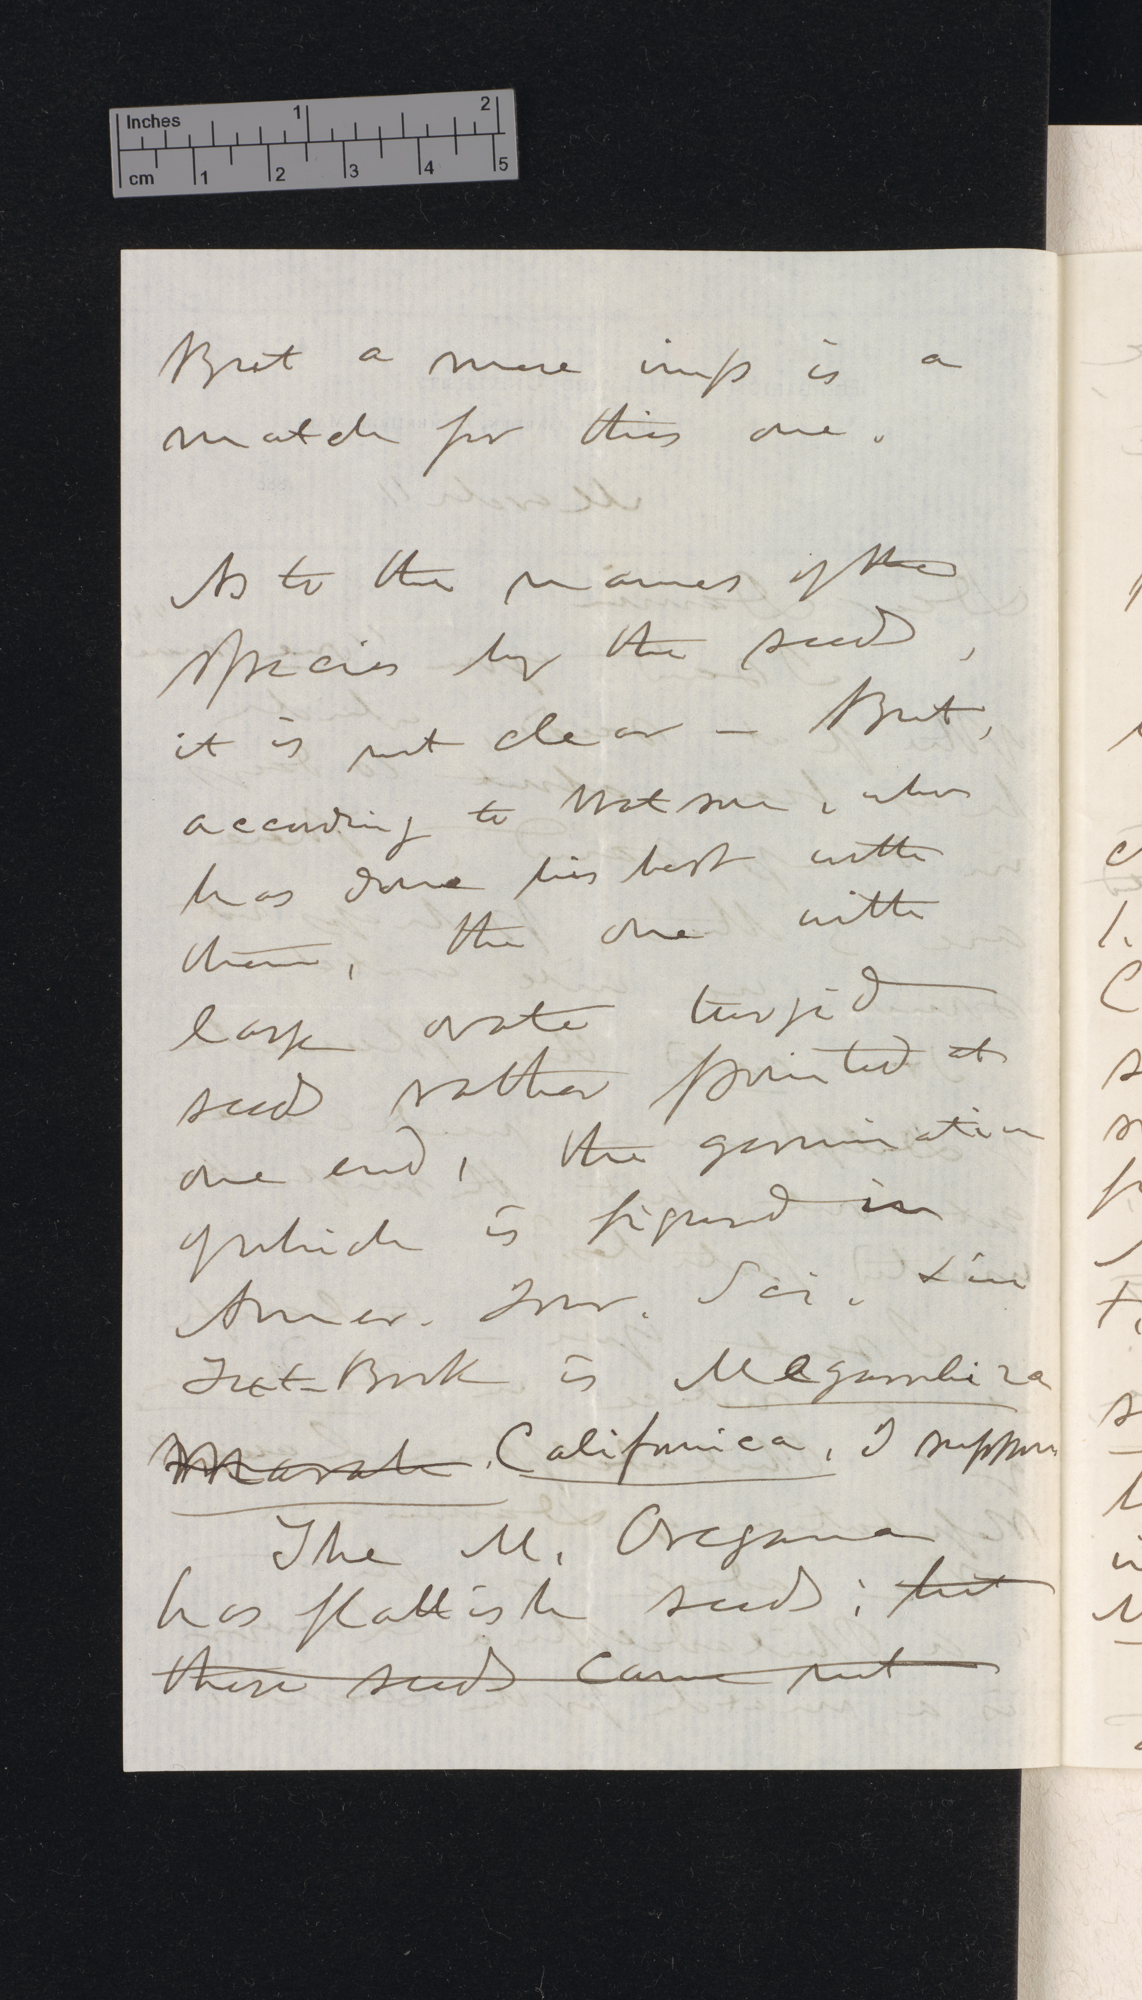 Inches 1 2
cm 1 2 3 4 5
But a mere imp is a
match for this one.
As to the names of the
species by the seeds,
it is not clear – But,
according to Watson, who
has done his best with
them, the one with
large ovate turgid
seeds rather pointed at
one end, the germination
of which is figured in
Amer. Jour. Sci. & in
Text-Book is Megarrhiza
Marah. Californica, I suppose
The M. Oregana
has flattish seeds; but
these seeds came not